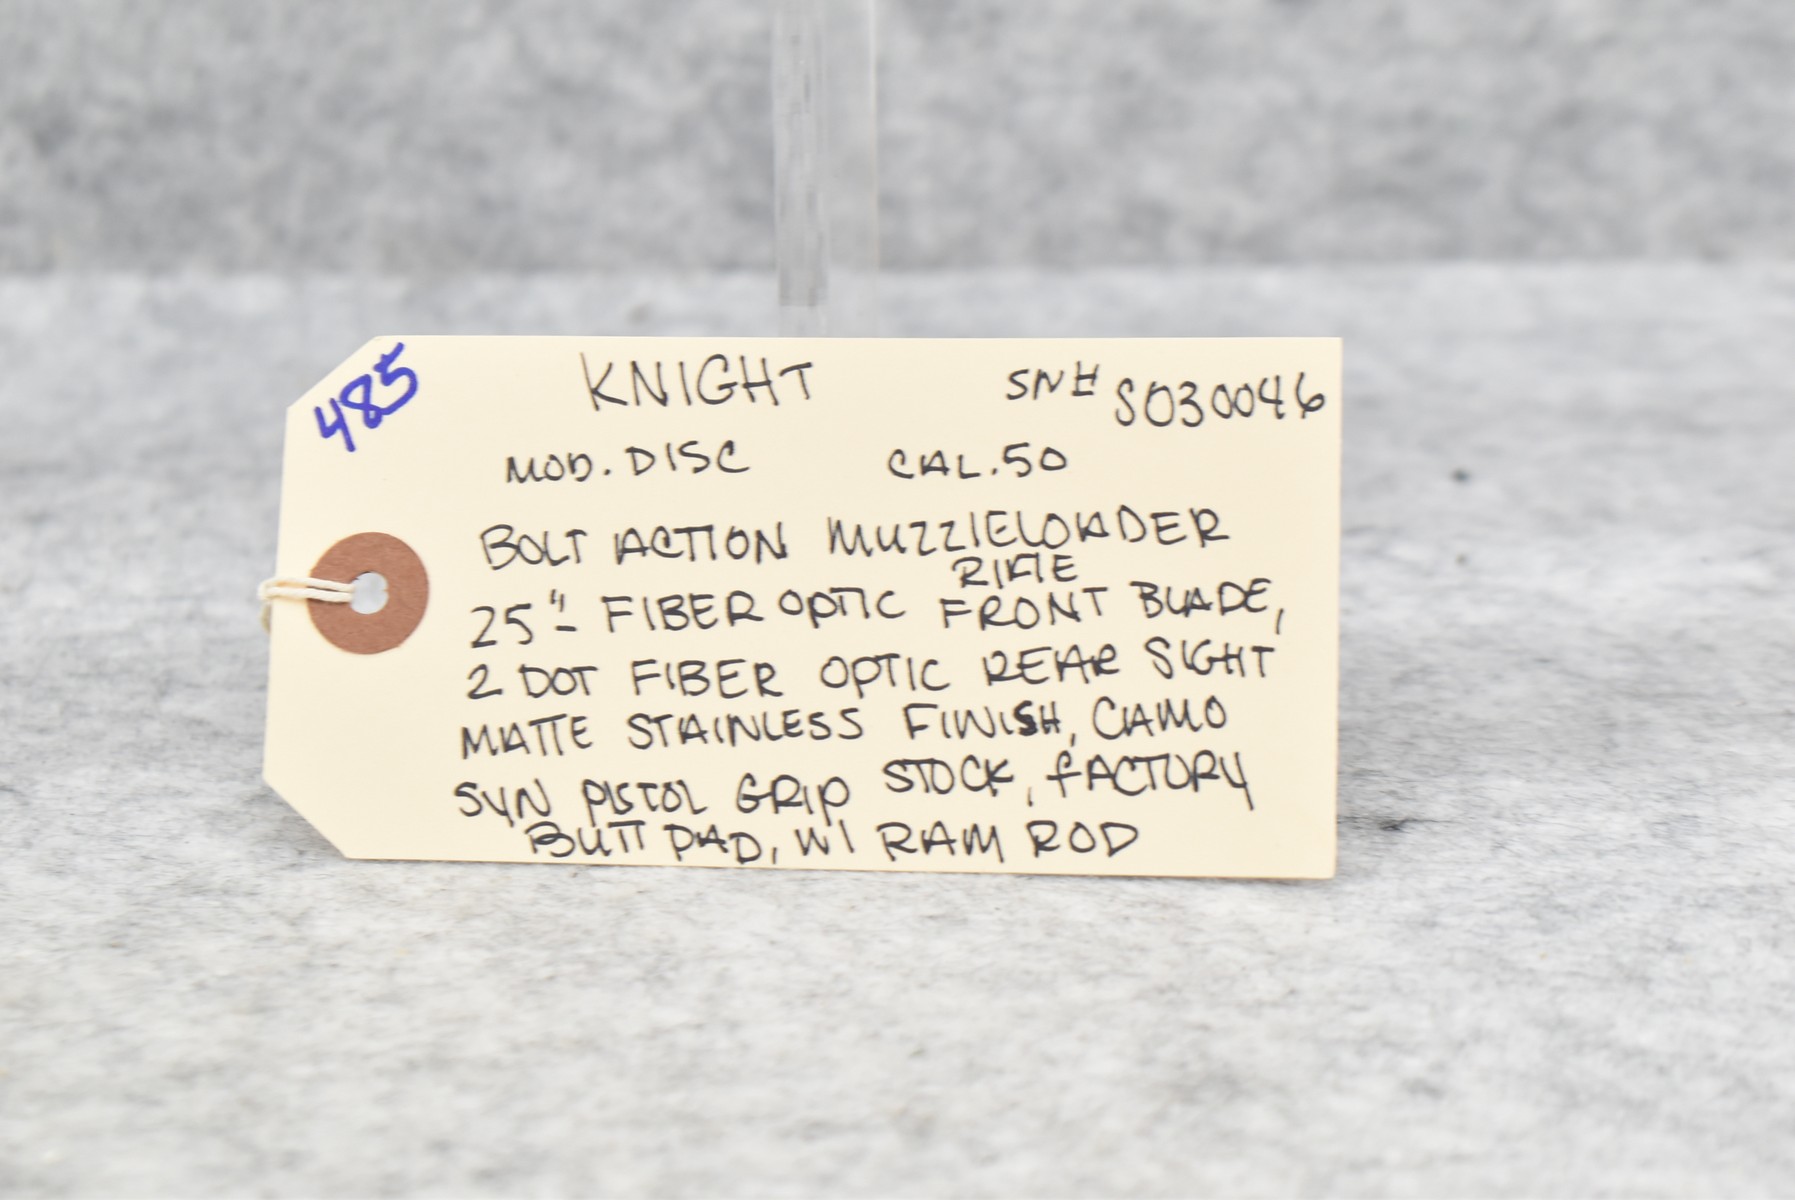 485
KNIGHT SN# S030046
MOD. DISC CAL .50
BOLT ACTION MUZZLELOADER
RIFLE
25" - FIBER OPTIC FRONT BLADE,
2 DOT FIBER OPTIC REAR SIGHT
MATTE STAINLESS FINISH, CAMO
SYN PISTOL GRIP STOCK, FACTORY
BUTT PAD, W/ RAM ROD